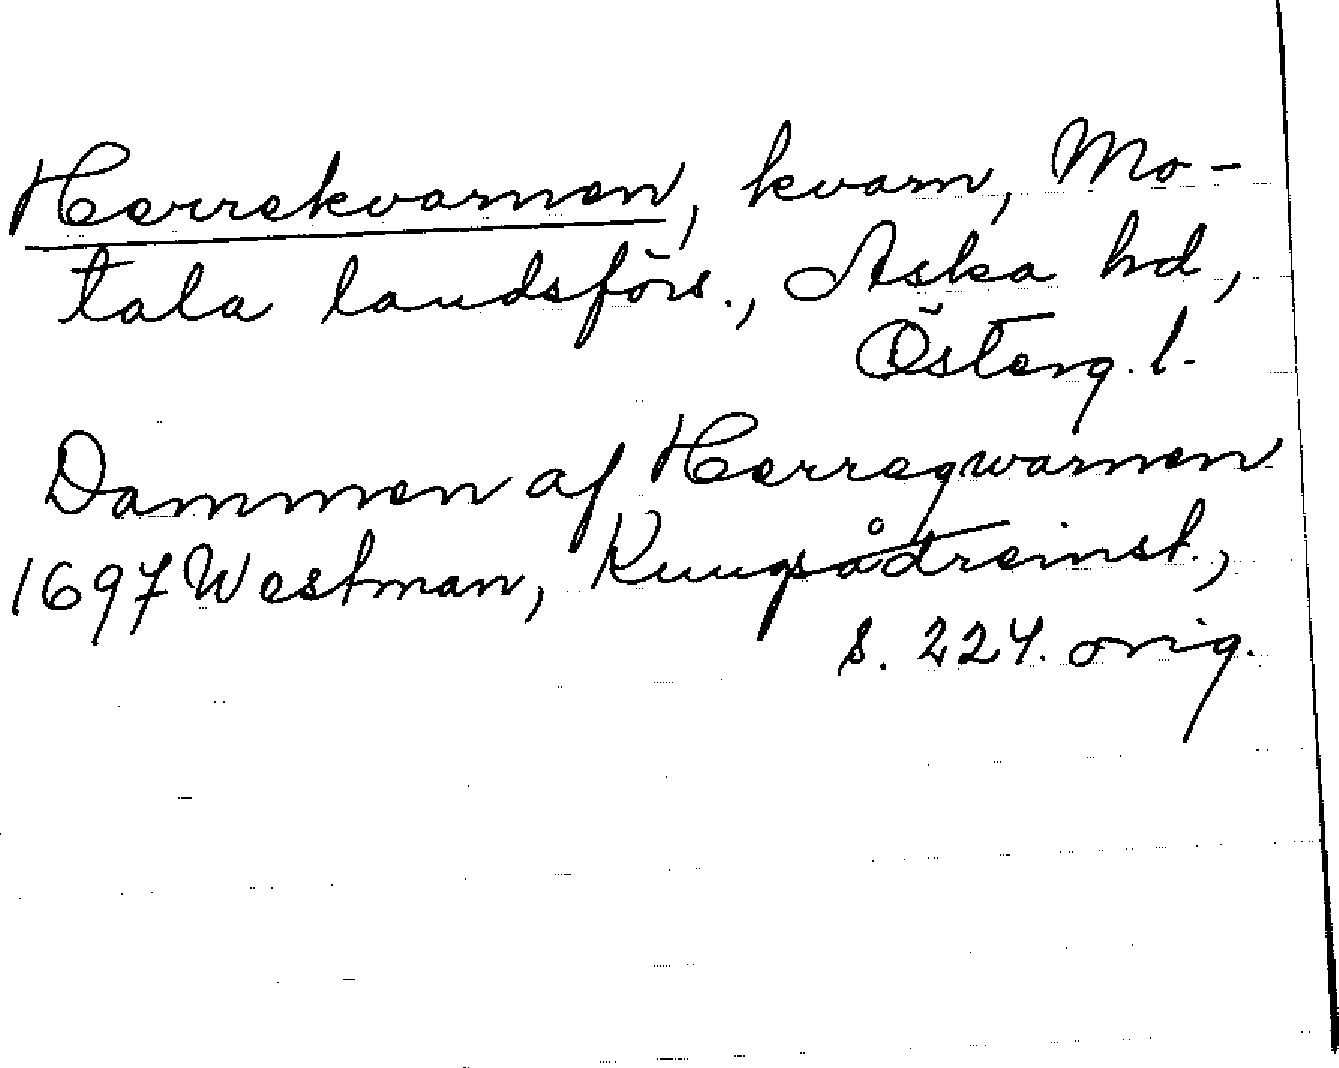 Herrekvarnen, kvarn, Mo-
tala landsförs., Aska hd,
Österg. l.
Dammen af Herreqwarnen
1697 Westman, Kungsådreinst.,
s. 224. orig.